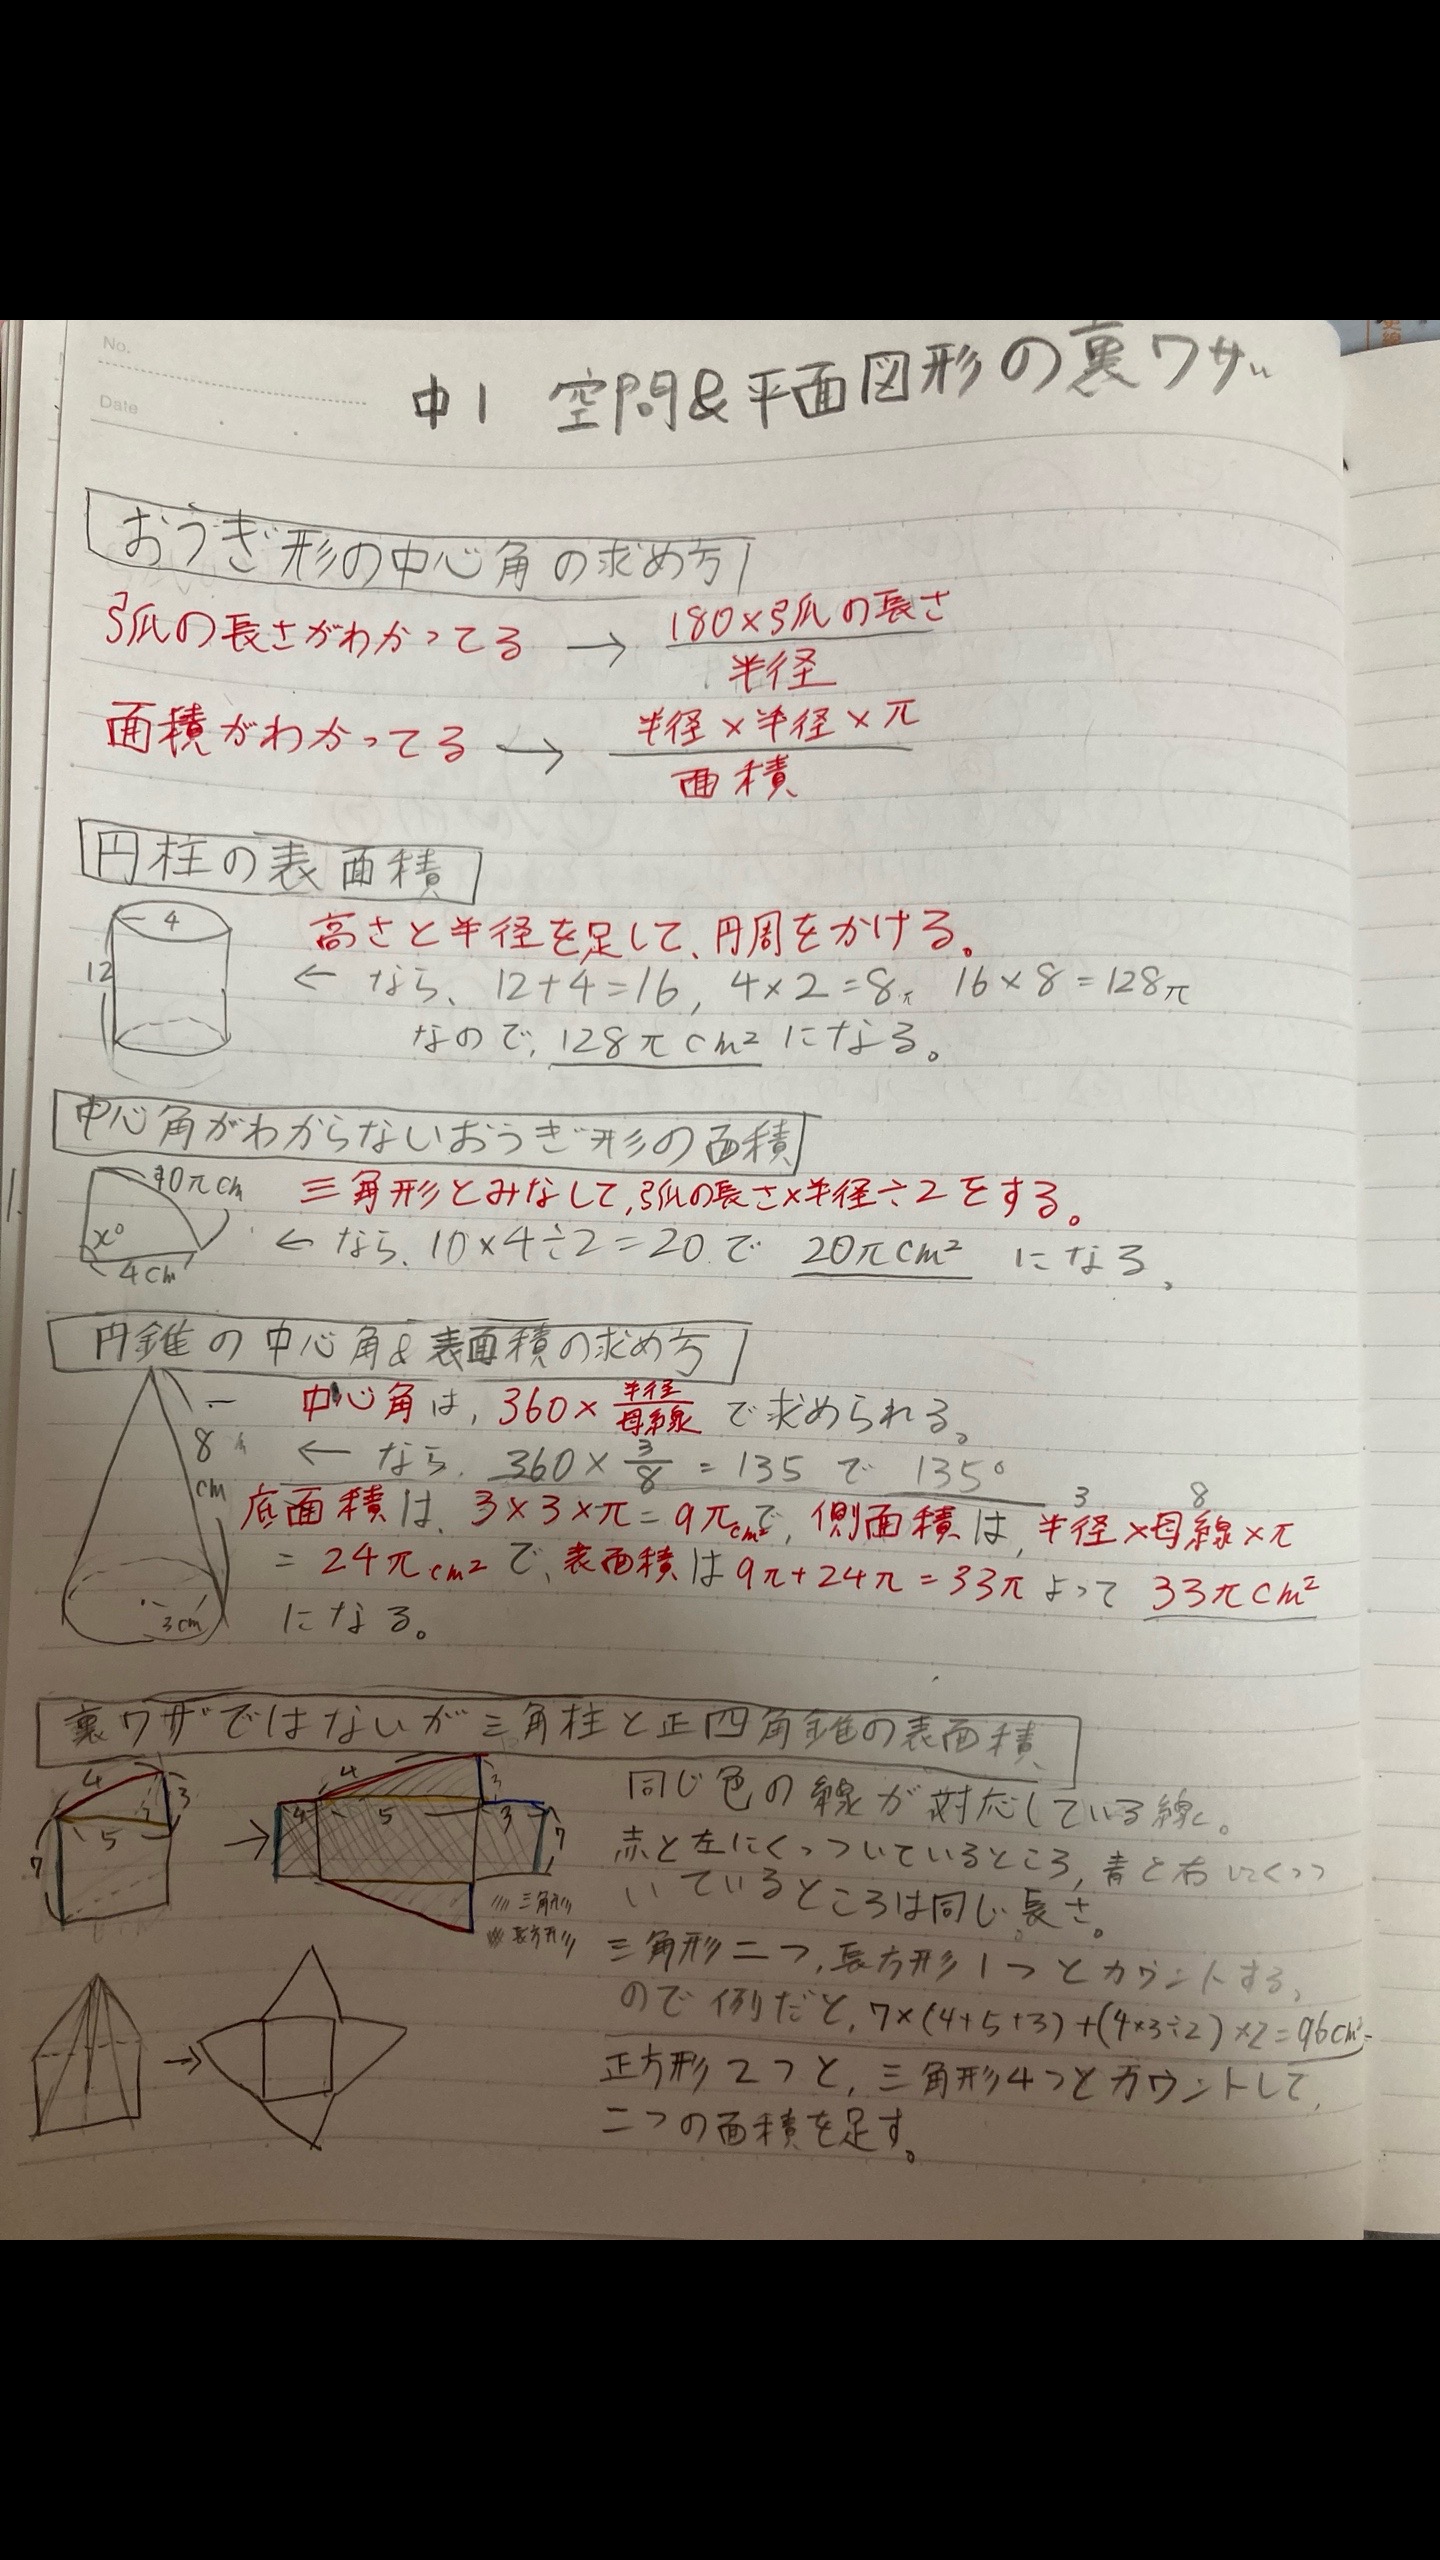 No.
Date
中1 空間&平面図形の裏ワザ
おうぎ形の中心角の求め方
弧の長さがわかってる → 180×弧の長さ/半径
面積がわかってる → 半径×半径×π/面積
円柱の表面積
4
12
高さと半径を足して、円周をかける。
← なら、12+4=16, 4×2=8π 16×8=128π
なので、128πcm²になる。
中心角がわからないおうぎ形の面積
10πcm
x°
4cm
三角形とみなして,弧の長さ×半径÷2をする。
← なら、10×4÷2=20で 20πcm² になる。
円錐の中心角&表面積の求め方
8
cm
3cm
中心角は, 360×半径/母線 で求められる。
← なら、360×3/8=135で 135°
3 8
底面積は、3×3×π=9πcm²で,側面積は,半径×母線×π
=24πcm²で、表面積は9π+24π=33π よって 33πcm²
になる。
裏ワザではないが三角柱と正四角錐の表面積
4 3
5
7
4 3
4 5 3
7
三角形
長方形
同じ色の線が対応している線。
赤と左にくっついているところ,青と右にくっつ
いているところは同じ長さ。
三角形二つ,長方形1つとカウントする。
ので例だと,7×(4+5+3)+(4×3÷2)×2=96cm²
正方形2つと,三角形4つとカウントして,
二つの面積を足す。